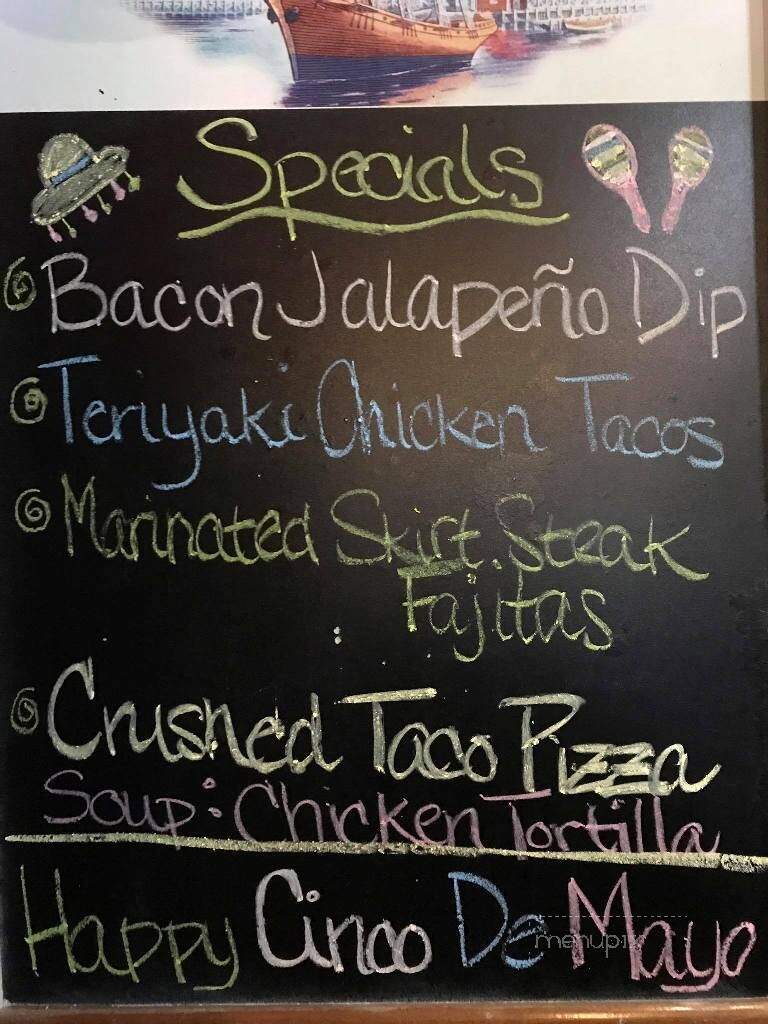 Specials
Bacon Jalapeño Dip
Teriyaki Chicken Tacos
Marinated Skirt Steak
Fajitas
Crushed Taco Pizza
Soup: Chicken Tortilla
Happy Cinco De Mayo
menupix